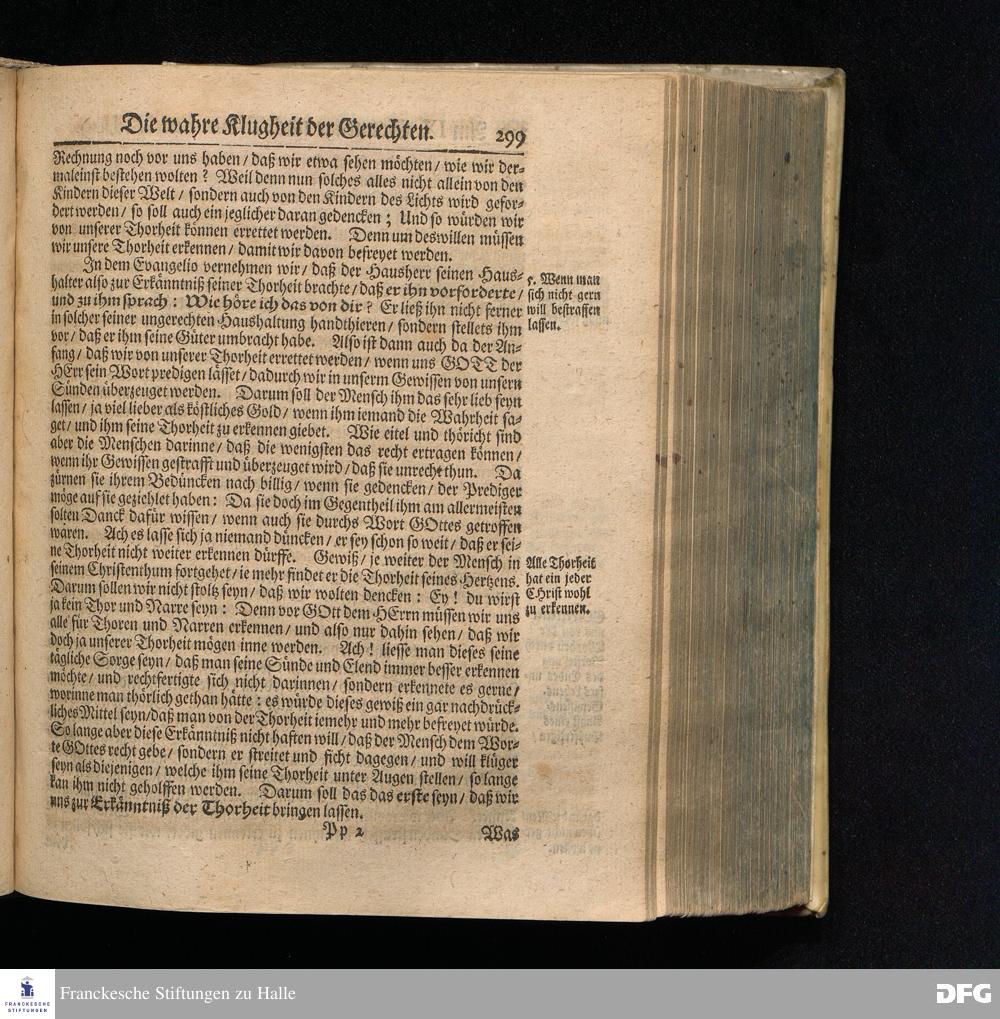 Die wahre Klugheit der Gerechten. 299
Rechnung noch vor uns haben / daß wir etwa sehen möchten / wie wir der-
maleinst bestehen wolten ? Weil denn nun solches alles nicht allein von den
Kindern dieser Welt / sondern auch von den Kindern des Lichts wird gefor-
dert werden / so soll auch ein jeglicher daran gedencken ; Und so würden wir
von unserer Thorheit können errettet werden. Denn um deswillen müssen
wir unsere Thorheit erkennen / damit wir davon befreyet werden.
In dem Evangelio vernehmen wir / daß der Hausherr seinen Haus-
halter also zur Erkänntniß seiner Thorheit brachte / daß er ihn vorforderte /
und zu ihm sprach : Wie höre ich das von dir ? Er ließ ihn nicht ferner
in solcher seiner ungerechten Haushaltung handthieren / sondern stellets ihm
vor / daß er ihm seine Güter umbracht habe. Also ist dann auch da der An-
fang / daß wir von unserer Thorheit errettet werden / wenn uns GOTT der
HErr sein Wort predigen lässet / dadurch wir in unserm Gewissen von unsern
Sünden überzeuget werden. Darum soll der Mensch ihm das sehr lieb seyn
lassen / ja viel lieber als köstliches Gold / wenn ihm iemand die Wahrheit sa-
get / und ihm seine Thorheit zu erkennen giebet. Wie eitel und thöricht sind
aber die Menschen darinne / daß die wenigsten das recht ertragen können /
wenn ihr Gewissen gestrafft und überzeuget wird / daß sie unrecht thun. Da
zürnen sie ihrem Bedüncken nach billig / wenn sie gedencken / der Prediger
möge auf sie geziehlet haben : Da sie doch im Gegentheil ihm am allermeisten
solten Danck dafür wissen / wenn auch sie durchs Wort GOttes getroffen
wären. Ach es lasse sich ja niemand düncken / er sey schon so weit / daß er sei-
ne Thorheit nicht weiter erkennen dürffe. Gewiß / je weiter der Mensch in
seinem Christenthum fortgehet / ie mehr findet er die Thorheit seines Hertzens.
Darum sollen wir nicht stoltz seyn / daß wir wolten dencken : Ey ! du wirst
ja kein Thor und Narre seyn : Denn vor GOtt dem HErrn müssen wir uns
alle für Thoren und Narren erkennen / und also nur dahin sehen / daß wir
doch ja unserer Thorheit mögen inne werden. Ach ! liesse man dieses seine
tägliche Sorge seyn / daß man seine Sünde und Elend immer besser erkennen
möchte / und rechtfertigte sich nicht darinnen / sondern erkennete es gerne /
worinne man thörlich gethan hätte : es würde dieses gewiß ein gar nachdrück-
liches Mittel seyn / daß man von der Thorheit iemehr und mehr befreyet würde.
So lange aber diese Erkänntniß nicht haften will / daß der Mensch dem Wor-
te GOttes recht gebe / sondern er streitet und ficht dagegen / und will klüger
seyn als diejenigen / welche ihm seine Thorheit unter Augen stellen / so lange
kan ihm nicht geholffen werden. Darum soll das das erste seyn / daß wir
uns zur Erkänntniß der Thorheit bringen lassen.
Pp 2 Was
5. Wenn man
sich nicht gern
will bestraffen
lassen.
Alle Thorheit
hat ein jeder
Christ wohl
zu erkennen.
FRANCKESCHE
STIFTUNGEN
Franckesche Stiftungen zu Halle
DFG